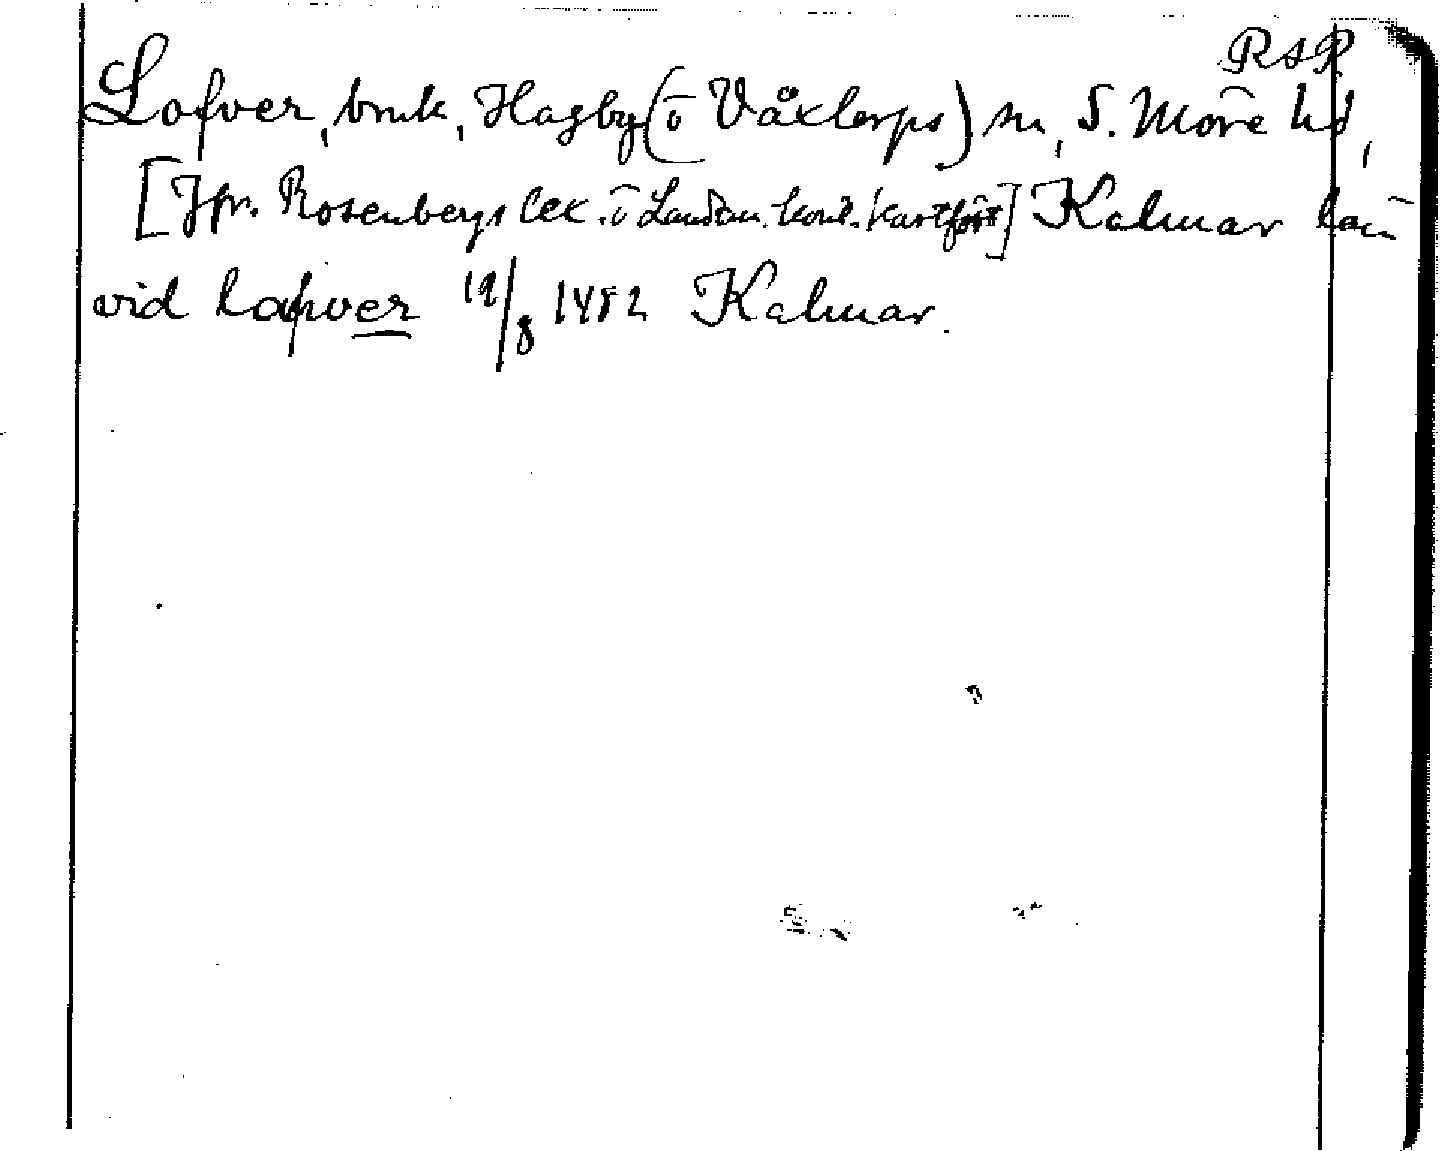 RAP
Lofver, bruk, Hagby (ö Växlerps) sn, S. Möre hd,
[Jfr. Rosenbergs lex. ö Landtm. kont. kartfört] Kalmar län
vid lafwer 12/8 1482 Kalmar.